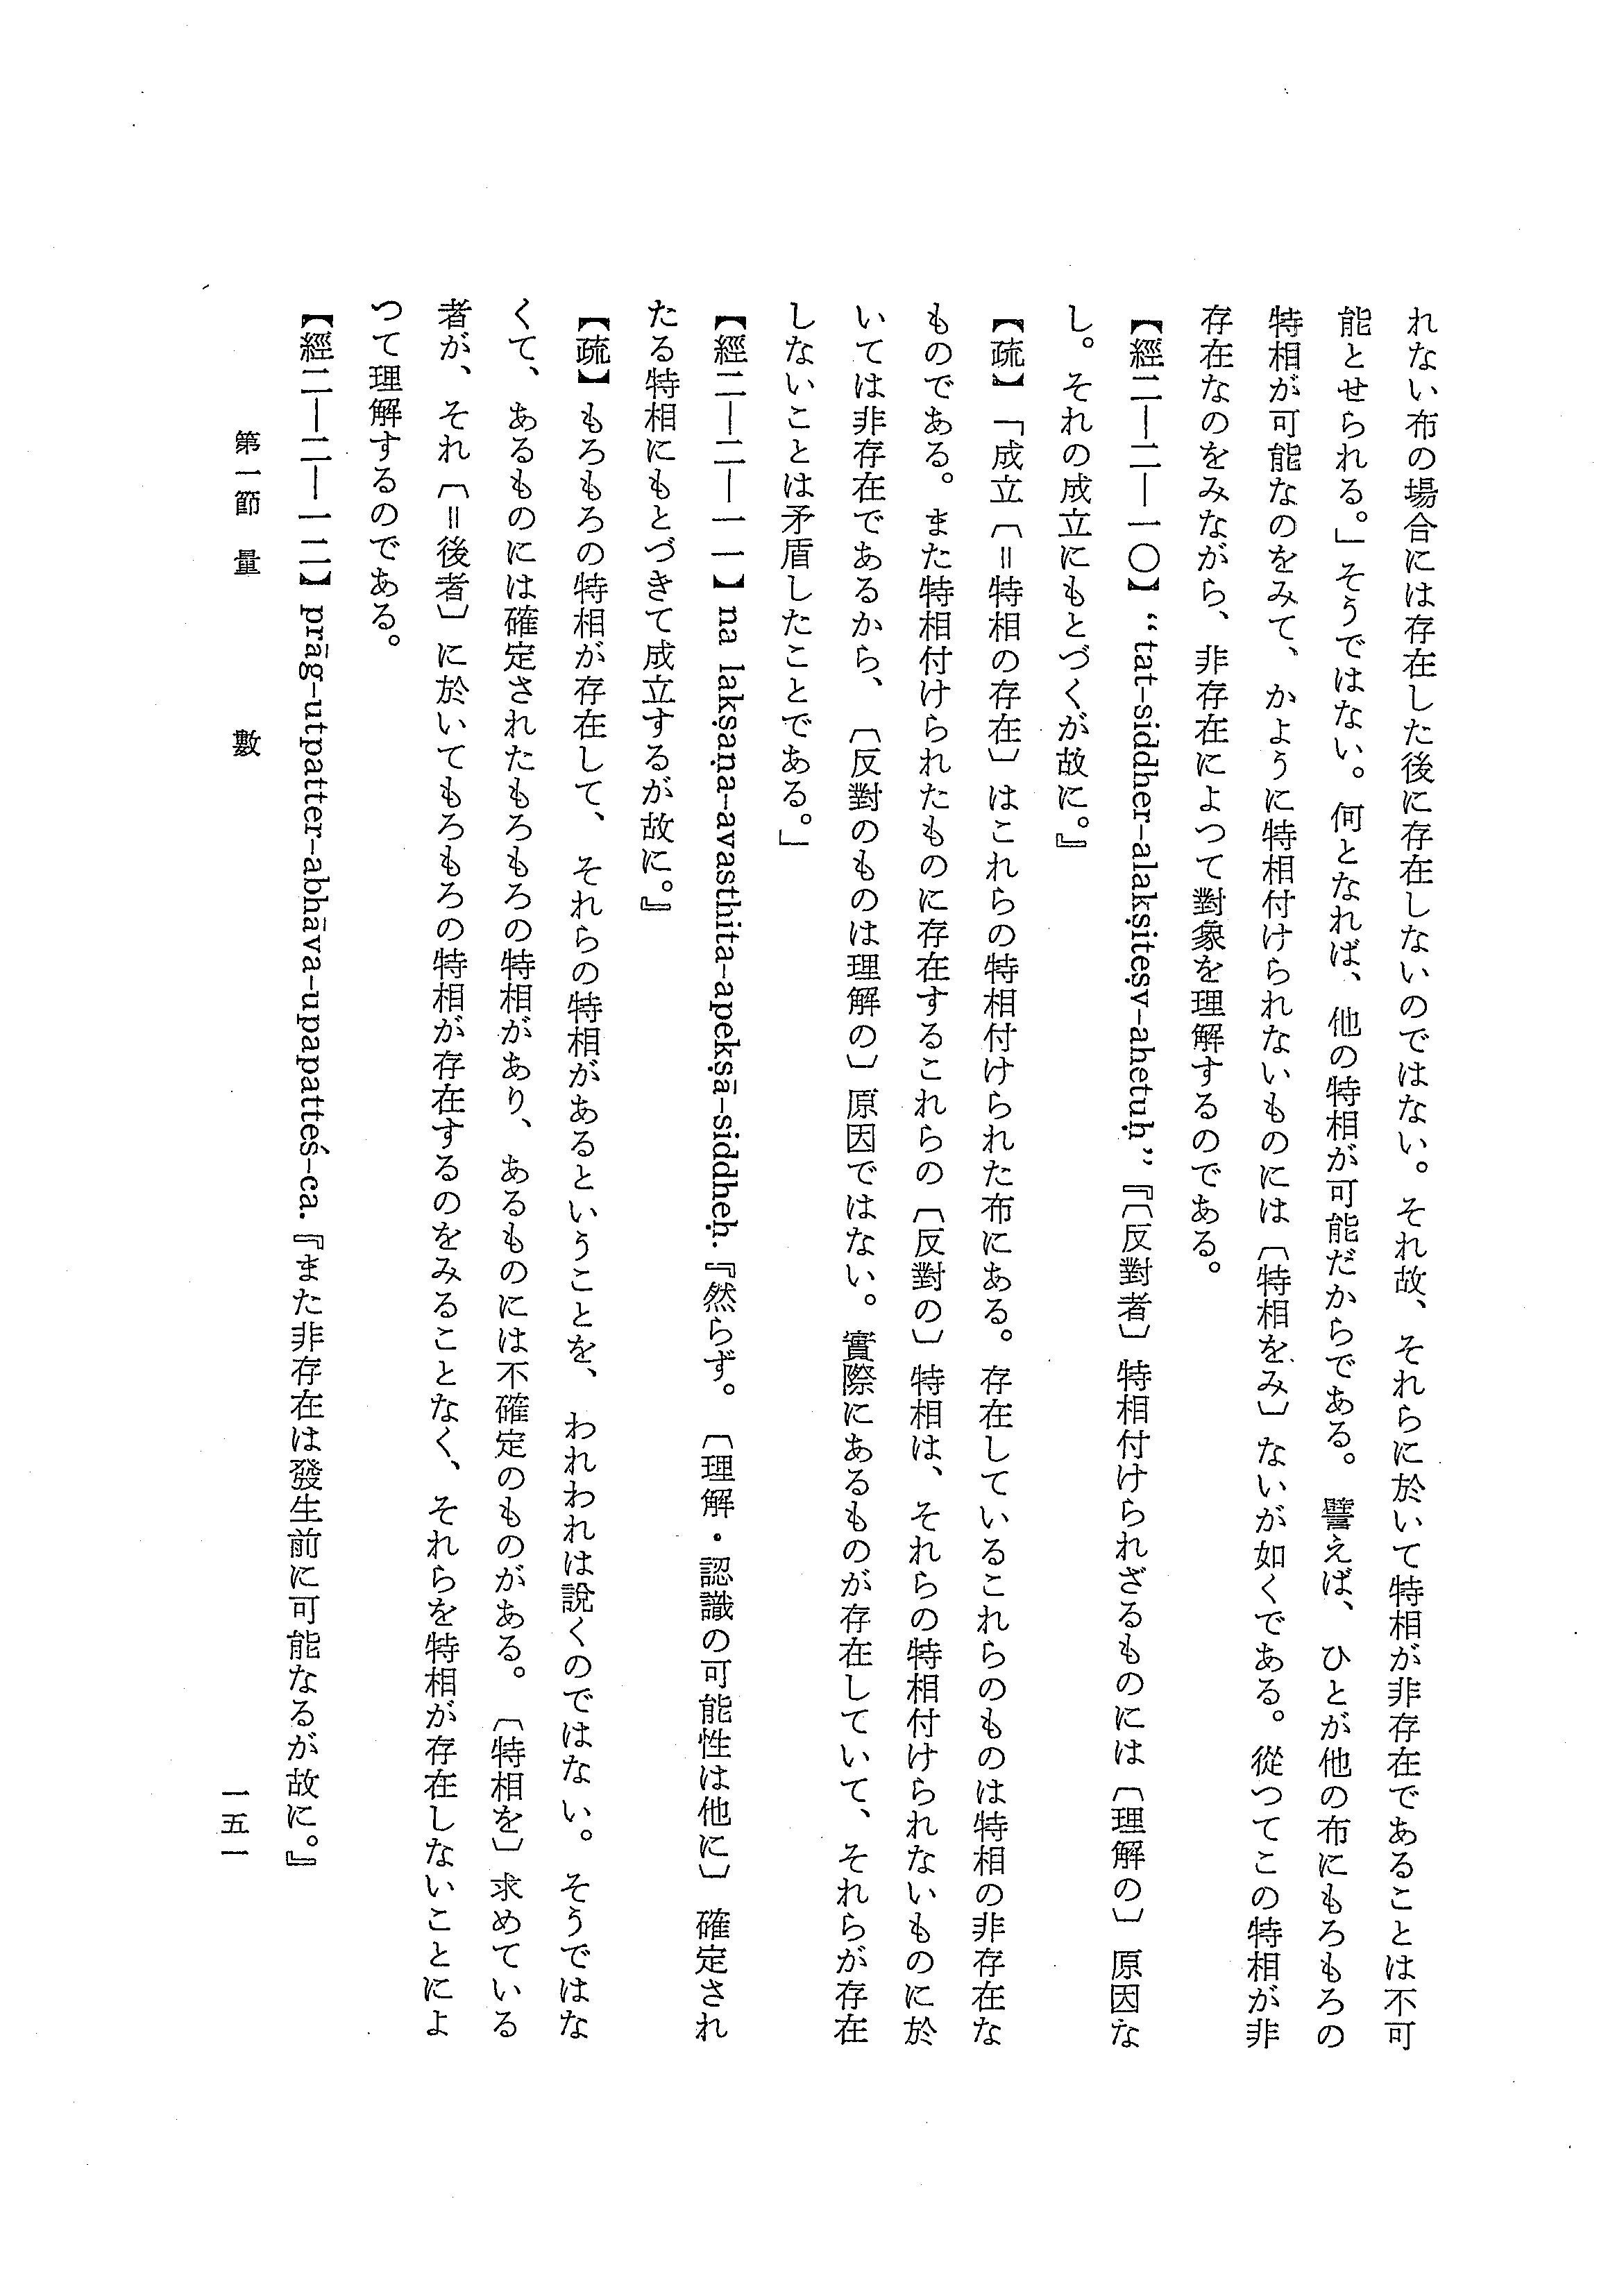 れない布の場合には存在した後に存在しないのではない。それ故、それらに於いて特相が非存在であることは不可
能とせられる。」そうではない。何となれば、他の特相が可能だからである。譬えば、ひとが他の布にもろもろの
特相が可能なのをみて、かように特相付けられないものには〔特相をみ〕ないが如くである。從つてこの特相が非
存在なのをみながら、非存在によつて對象を理解するのである。
【經二―二―一〇】“tat-siddher-alakṣiteṣv-ahetuḥ”『〔反對者〕特相付けられざるものには〔理解の〕原因な
し。それの成立にもとづくが故に。』
【疏】「成立〔＝特相の存在〕はこれらの特相付けられた布にある。存在しているこれらのものは特相の非存在な
ものである。また特相付けられたものに存在するこれらの〔反對の〕特相は、それらの特相付けられないものに於
いては非存在であるから、〔反對のものは理解の〕原因ではない。實際にあるものが存在していて、それらが存在
しないことは矛盾したことである。」
【經二―二―一一】na lakṣaṇa-avasthita-apekṣā-siddheḥ.『然らず。〔理解・認識の可能性は他に〕確定され
たる特相にもとづきて成立するが故に。』
【疏】もろもろの特相が存在して、それらの特相があるということを、われわれは說くのではない。そうではな
くて、あるものには確定されたもろもろの特相があり、あるものには不確定のものがある。〔特相を〕求めている
者が、それ〔＝後者〕に於いてもろもろの特相が存在するのをみることなく、それらを特相が存在しないことによ
つて理解するのである。
【經二―二―一二】prāg-utpatter-abhāva-upapatteś-ca.『また非存在は發生前に可能なるが故に。』
第一節　量　　　數
一五一